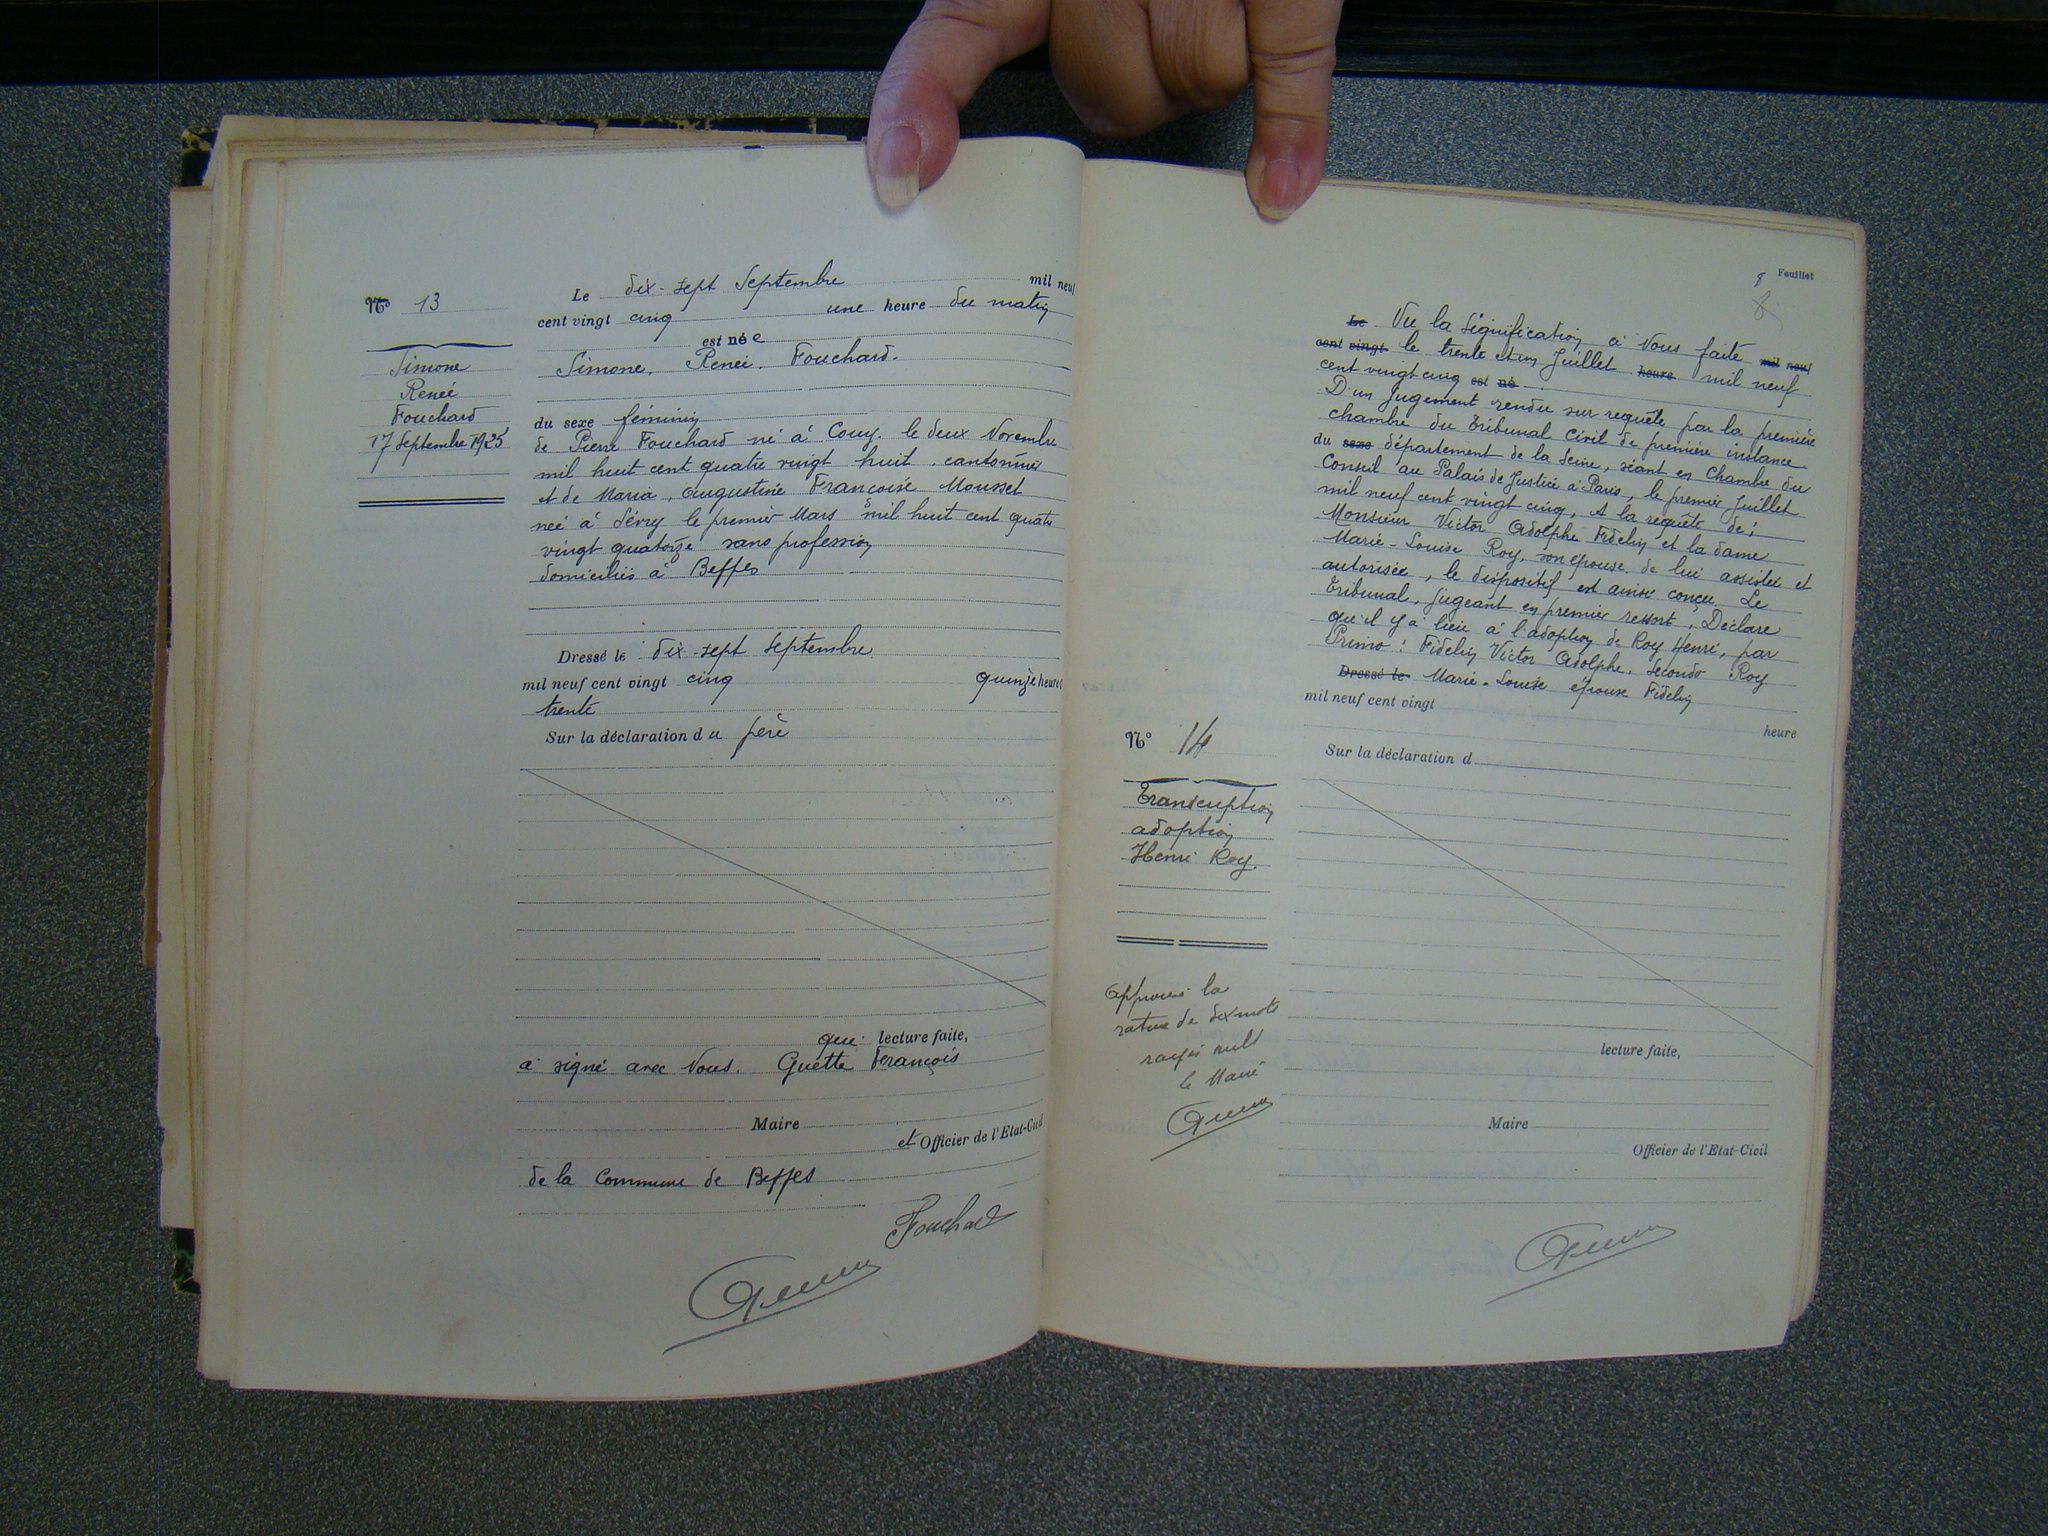 N° 13
Simone
Renée
Fouchard
17 Septembre 1925
Le dix-sept Septembre mil neuf
cent vingt cinq une heure du matin
est née
Simone, Renée, Fouchard.
du sexe féminin
de Pierre Fouchard né à Couy, le deux Novembre
mil huit cent quatre vingt huit, cantonnier
et de Maria, Augustine Françoise Mousset
née à Sévry le premier Mars mil huit cent quatre
vingt quatorze sans profession
domiciliés à Beffes
Dressé le dix-sept Septembre
mil neuf cent vingt cinq quinze heures
trente
Sur la déclaration du père
qui lecture faite,
a signé avec Nous. Guette François
Maire
et Officier de l'Etat-Civil
de la Commune de Beffes
Fouchard
Feuillet
8
Le Vu la Signification à Nous faite mil neuf
cent vingt le trente et un Juillet heure mil neuf
cent vingt cinq est né
D'un Jugement rendu sur requête par la première
chambre du Tribunal Civil de première instance
du sexe département de la Seine, séant en Chambre du
Conseil au Palais de Justice à Paris, le premier Juillet
mil neuf cent vingt cinq, A la requête de;
Monsieur Victor Adolphe Fidelin et la dame
Marie-Louise Roy, son épouse de lui assistée et
autorisée, le dispositif est ainsi conçu. Le
Tribunal, Jugeant en premier ressort, Déclare
qu'il y a lieu à l'adoption de Roy Henri, par
Primo: Fidelin Victor Adolphe, Secondo Roy
Dressé le Marie-Louise épouse Fidelin
mil neuf cent vingt
heure
Sur la déclaration d
N° 14
Transcription
adoption
Henri Roy.
Approuvé la
rature de dix mots
rayés nuls
le Maire
lecture faite,
Maire
Officier de l'Etat-Civil